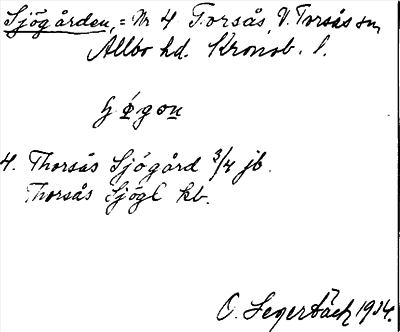 Sjögården, = Nr 4 Torsås, V. Torsås sn,
Allbo hd. Kronob. l.
4. Thorsås Sjögård 3/4 jb.
Thorsås Sjögl kb.
1914.